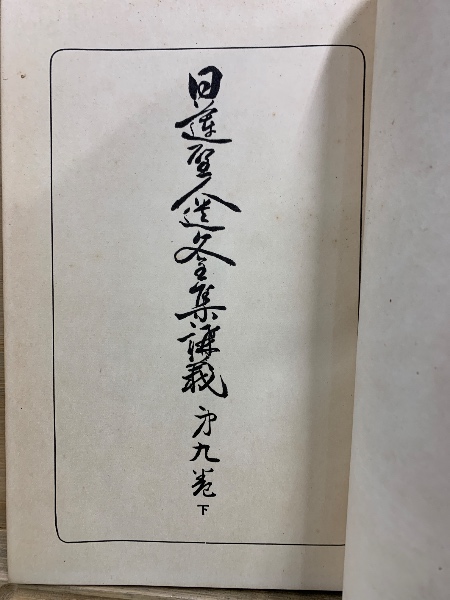 日蓮聖人遺文全集講義 第九巻 下